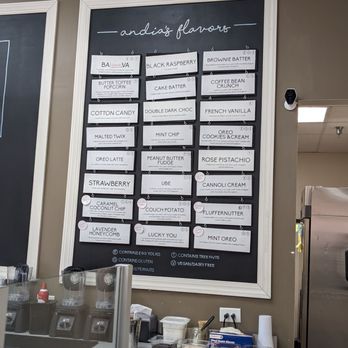 andia's flavors
BA
VA
BLACK RASPBERRY
BROWNIE BATTER
BUTTER TOFFEE
POPCORN
CAKE BATTER
COFFEE BEAN
CRUNCH
COTTON CANDY
DOUBLE DARK CHOC
FRENCH VANILLA
MALTED TWIX
MINT CHIP
OREO
COOKIES & CREAM
OREO LATTE
PEANUT BUTTER
FUDGE
ROSE PISTACHIO
STRAWBERRY
UBE
CANNOLI CREAM
CARAMEL
COCONUT CHIP
COUCH POTATO
FLUFFERNUTTER
LAVENDER
HONEYCOMB
LUCKY YOU
MINT OREO
CONTAINS EGG YOLKS
CONTAINS TREE NUTS
CONTAINS GLUTEN
VEGAN/DAIRY FREE